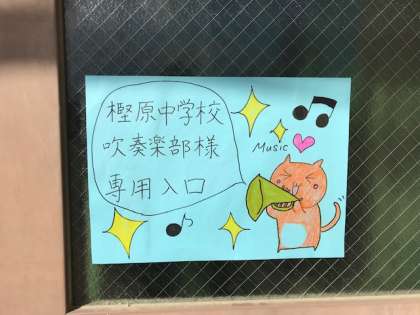 樫原中学校
吹奏楽部様
専用入口
Music